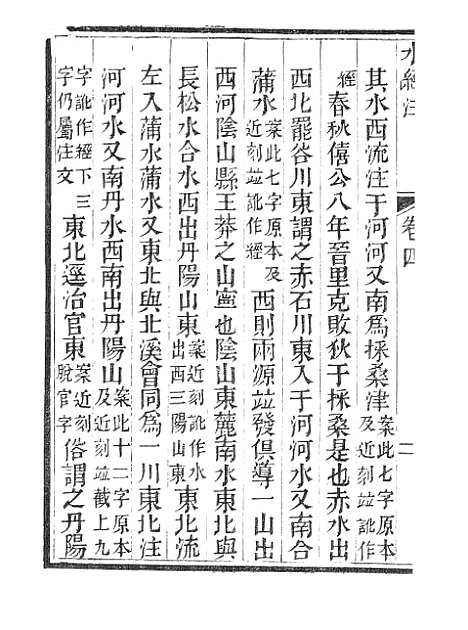 水經注 卷四 二
其水西流注于河河又南爲採桑津案此七字原本及近刻竝訛作
經春秋僖公八年晉里克敗狄于採桑是也赤水出
西北罷谷川東謂之赤石川東入于河河水又南合
蒲水案此七字原本及近刻竝訛作經西則兩源竝發俱導一山出
西河陰山縣王莽之山寧也陰山東麓南水東北與
長松水合水西出丹陽山東案近刻訛作水出西三陽山東東北流
左入蒲水蒲水又東北與北溪會同爲一川東北注
河河水又南丹水西南出丹陽山案此十二字原本及近刻竝截上九
字訛作經下三字仍屬注文東北逕冶官東案近刻脫官字俗謂之丹陽